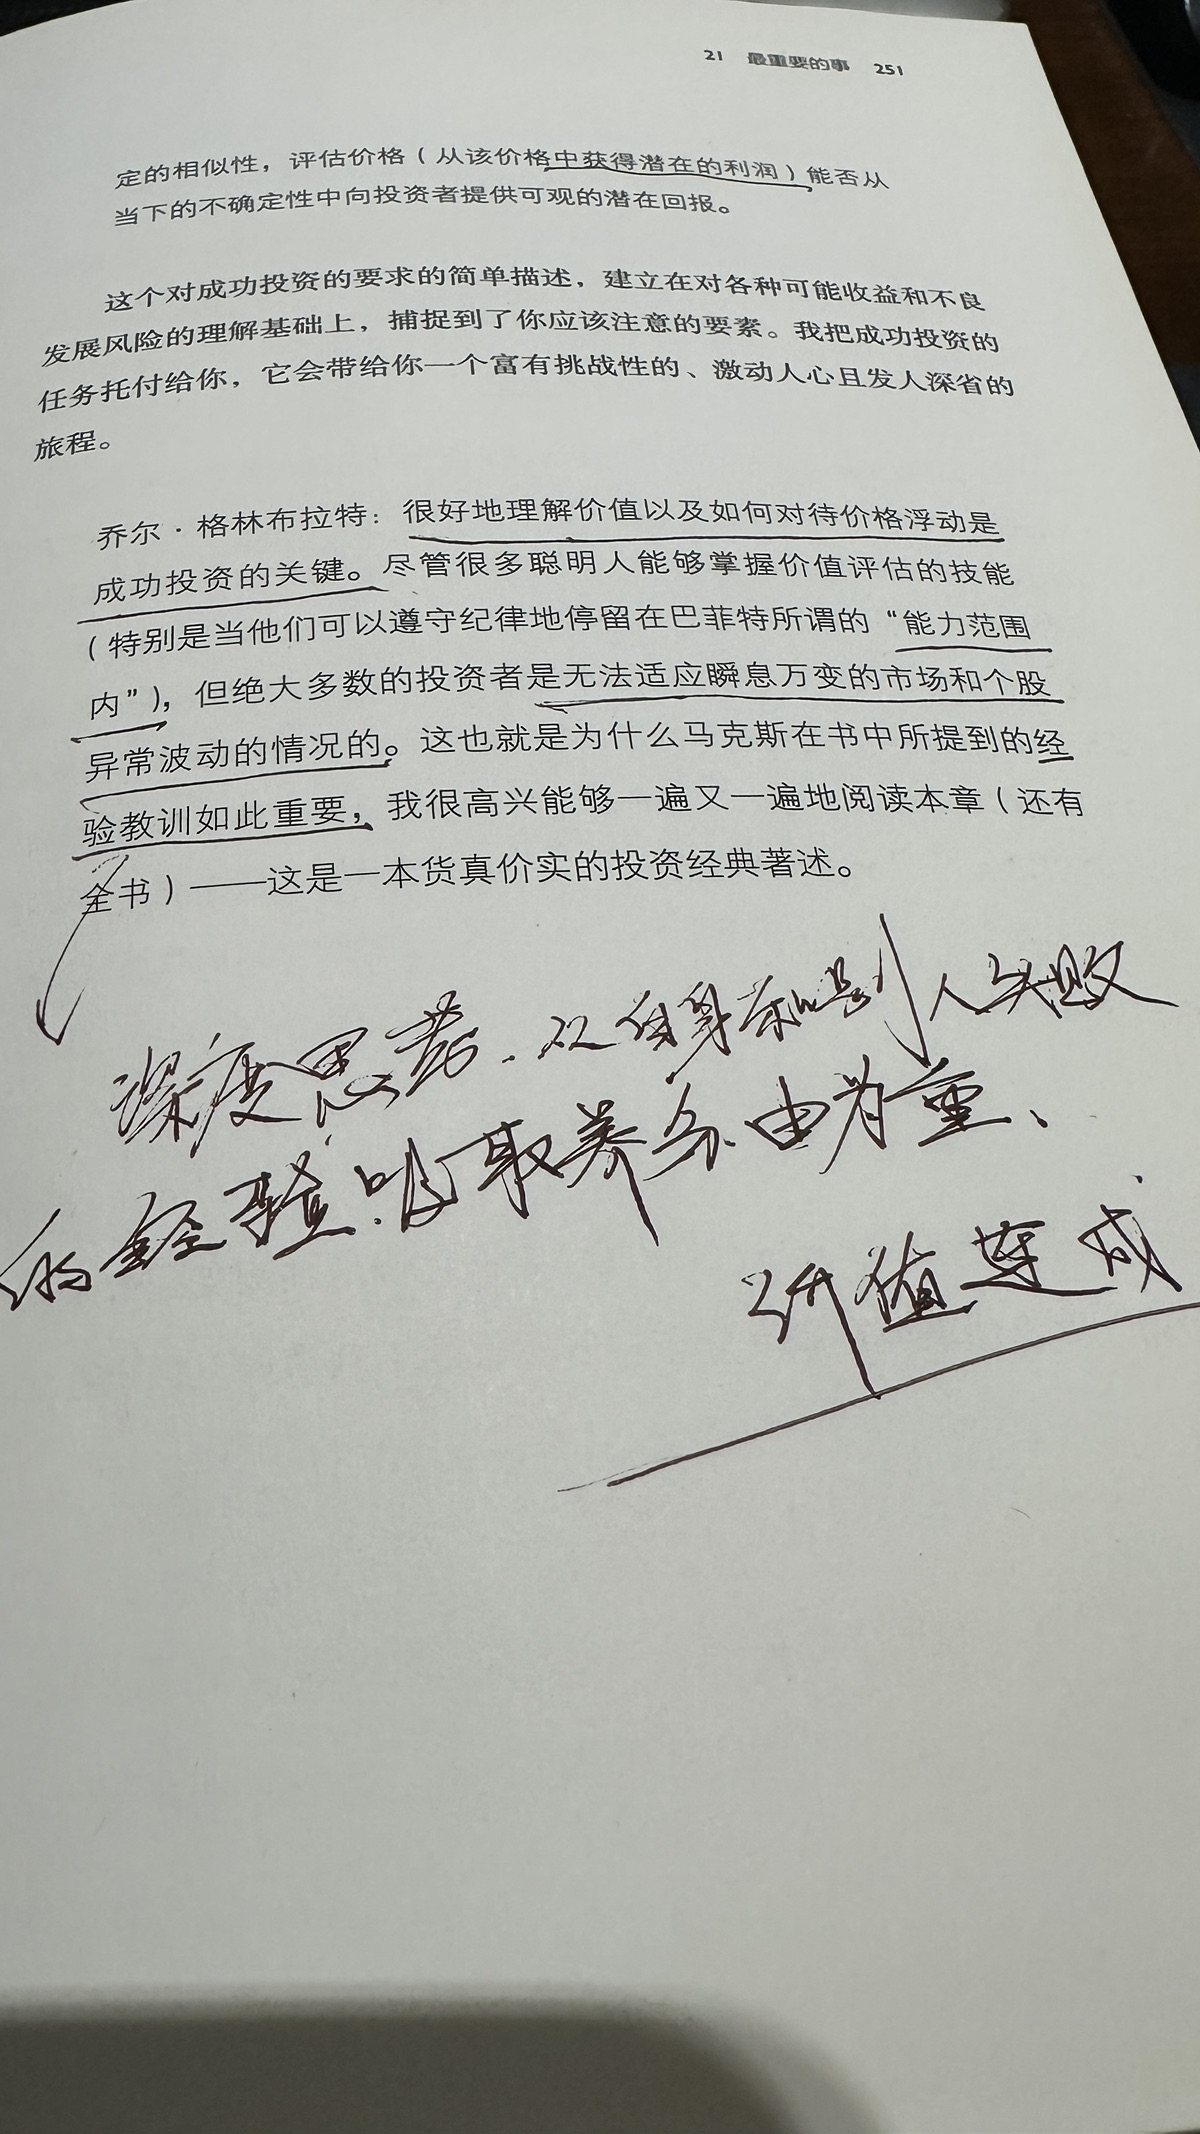 21 最重要的事 251
定的相似性，评估价格（从该价格中获得潜在的利润）能否从
当下的不确定性中向投资者提供可观的潜在回报。
这个对成功投资的要求的简单描述，建立在对各种可能收益和不良
发展风险的理解基础上，捕捉到了你应该注意的要素。我把成功投资的
任务托付给你，它会带给你一个富有挑战性的、激动人心且发人深省的
旅程。
乔尔·格林布拉特：很好地理解价值以及如何对待价格浮动是
成功投资的关键。尽管很多聪明人能够掌握价值评估的技能
（特别是当他们可以遵守纪律地停留在巴菲特所谓的“能力范围
内”），但绝大多数的投资者是无法适应瞬息万变的市场和个股
异常波动的情况的。这也就是为什么马克斯在书中所提到的经
验教训如此重要，我很高兴能够一遍又一遍地阅读本章（还有
全书）——这是一本货真价实的投资经典著述。
深度思考．从自身和别人失败
的经验．吸取养分．由为重、
价值连成